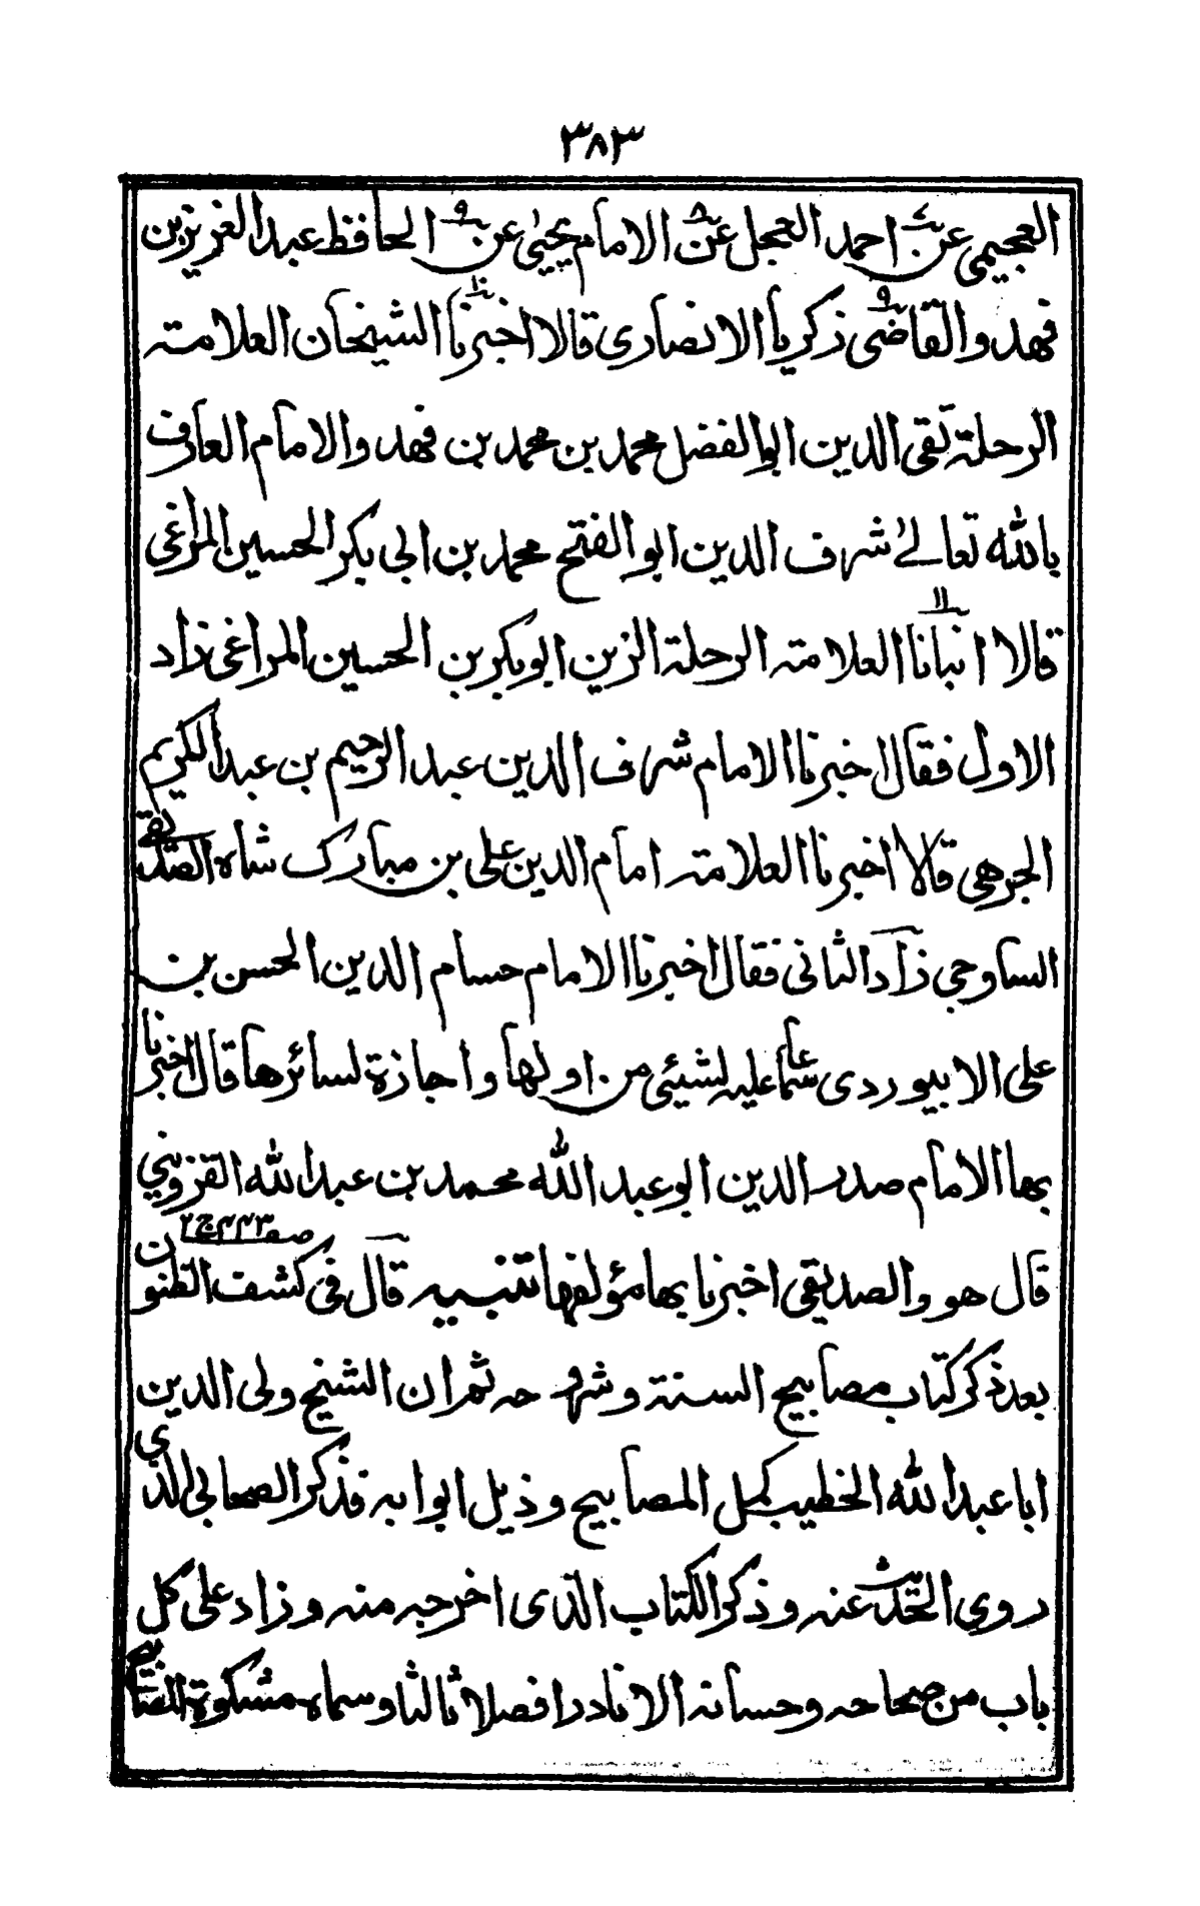 ٣٨٣
العجيمى عن احمد العجل عن الامام يحيىٰ عن الحافظ عبد العزيز بن
فهد والقاضى ذكريا الانصارى قالا اخبرنا الشيخان العلامته
الرحلة تقى الدين ابو الفضل محمد بن محمد بن فهد والامام العارف
بالله تعالےٰ شرف الدين ابو الفتح محمد بن ابى بكر الحسين المراغى
قالا انبانا العلامته الرحلة الزين ابو بكر بن الحسين المراغى زاد
الاول فقال اخبرنا الامام شرف الدين عبد الرحيم بن عبد الكريم
الجرهى قالا اخبرنا العلامته امام الدين على بن مبارك شاه الصديقے
الساوجى زاد الثانى فقال اخبرنا الامام حسام الدين الحسن بن
على الابيوردى سماعا عليه لشيئى من اولها واجازة لسائرها قال اخبرنا
بها الامام صدر الدين ابو عبد الله محمد بن عبد الله القزوينى
صـ٤٤٣ ج٢
قال هو والصديقى اخبرنا بها مؤلفها تنبيه قال فى كشف الظنون
بعد ذكر كتاب مصابيح السنة وشروحه ثم ان الشيخ ولى الدين
ابا عبد الله الخطيب كمل المصابيح وذيل ابوابه فذكر الصحابى الذي
روى الحديث عنه وذكر الكتاب الذى اخرجه منه وزاد على كل
باب من صحاحه وحسانه الا نادرا فصلا ثالثا وسماه مشكوة المصابيح